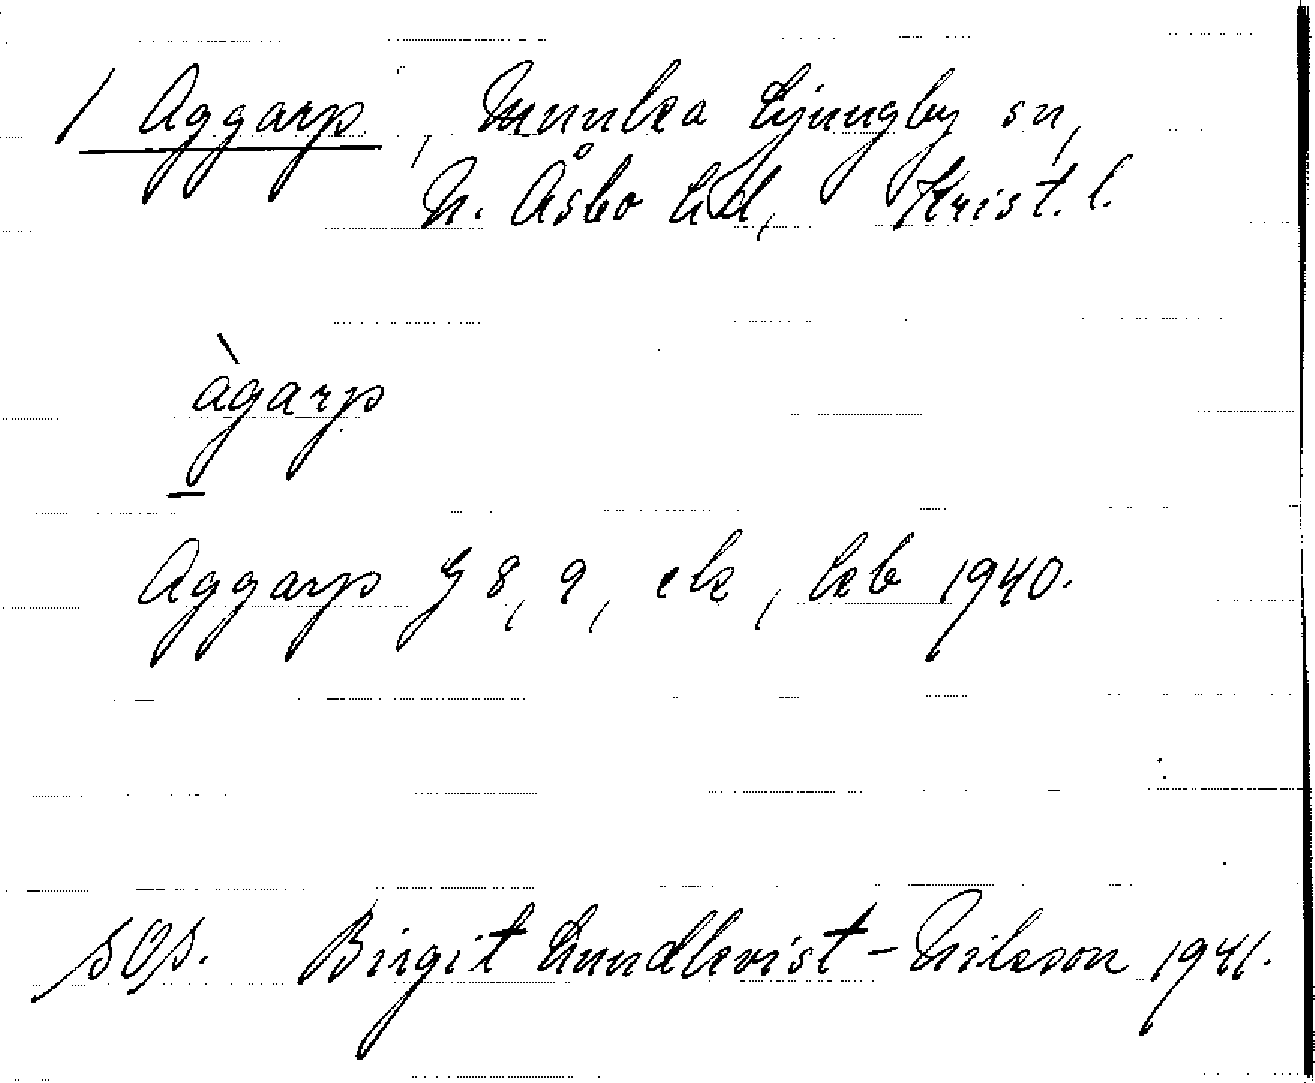 / Aggarp, Munka Ljungby sn,
N. Åsbo hd, Krist. l.
àgarp
Aggarp G 8, 9, ek, kb 1940.
SOS. Birgit Lundkvist-Nilsson 1941.